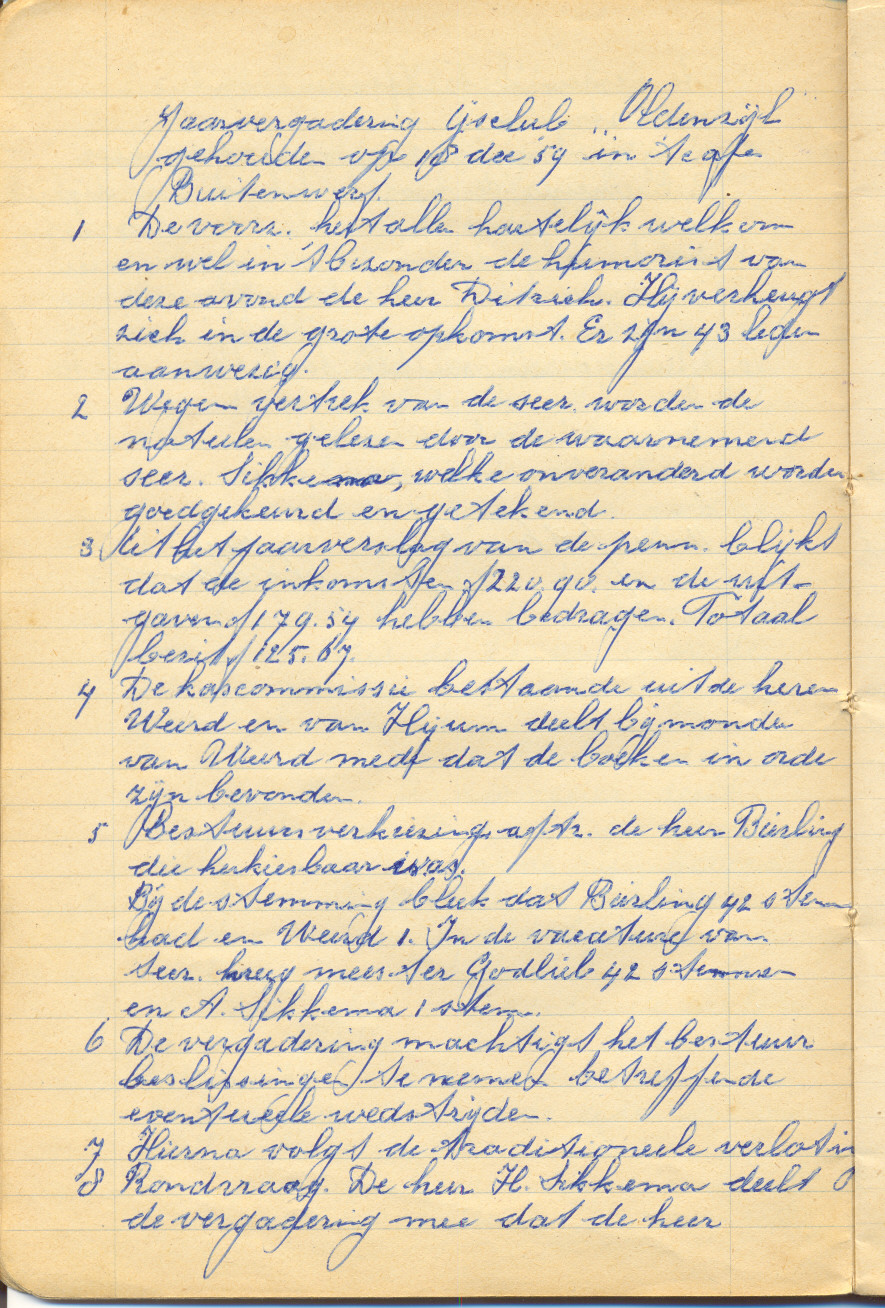 Jaarvergadering Ijsclub „Oldenzijl
gehouden op 18 dec '59 in 't cafe
Buitenwerf.
1 De voorz. heet allen hartelijk welkom
en wel in 't bezonder de humorist van
deze avond de heer Ditrich. Hij verheugt
zich in de grote opkomst. Er zijn 43 leden
aanwezig.
2 Wegen vertrek van de secr. worden de
notulen gelezen door de waarnemend
secr. Sikkema, welke onveranderd worden
goedgekeurd en getekend.
3 Uit het jaarverslag van de penn. blijkt
dat de inkomsten f 220.90. en de uit-
gaven f 179.54 hebben bedragen. Totaal
bezit f 125.67.
4 De kascommissie bestaande uit de heren
Weerd en van Hijum deelt bij monde
van Weerd mede dat de boeken in orde
zijn bevonden.
5 Bestuursverkiezing aftr. de heer Bierling
die herkiesbaar was.
Bij de stemming bleek dat Bierling 42 stemmen
had en Weerd 1. In de vacature van
secr. kreeg meester Godlieb 42 stemmen
en A. Sikkema 1 stem.
6 De vergadering machtigt het bestuur
beslissingen te nemen betreffende
eventueele wedstrijden.
7 Hierna volgt de traditioneele verloting
8 Rondvraag. De heer H. Sikkema deelt
de vergadering mee dat de heer